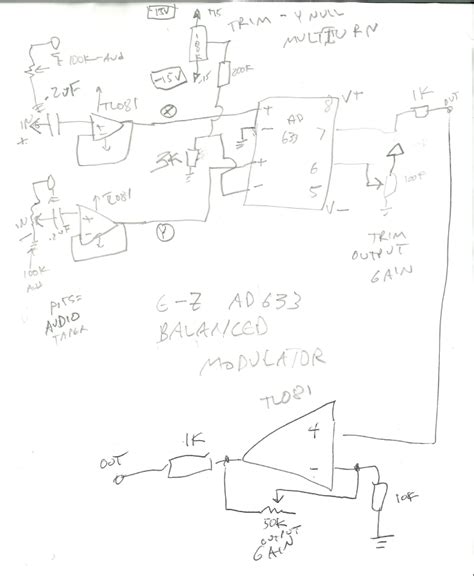 -15V
+15
TRIM - Y NULL
MULTITURN
100K-Aud
.2uF
TL081
-15V
-15
200K
V+
1K
OUT
IN
+
-
X
+
-
AD
633
8
7
6
5
3K
+
-
V-
100K
TL081
IN
.2uF
+
-
Y
100K
Aud
TRIM
OUTPUT
GAIN
POTS=
AUDIO
TAPER
E-Z AD633
BALANCED
MODULATOR
TL081
1K
OUT
+
-
50K
OUTPUT
GAIN
10K